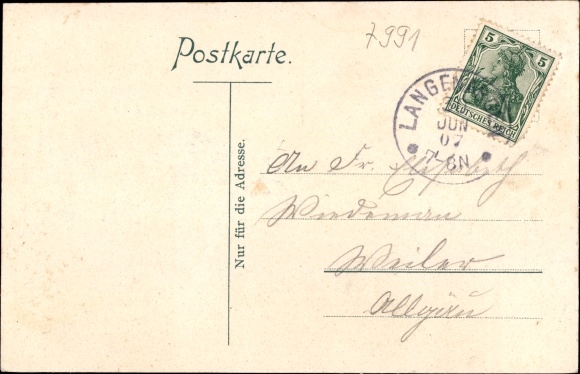 7991
Postkarte.
5 5
DEUTSCHES REICH
LANGEN
JUN
07
7-8N
Nur für die Adresse.
An Fr. Elisabeth
Wiedeman
Weiler
Allgäu